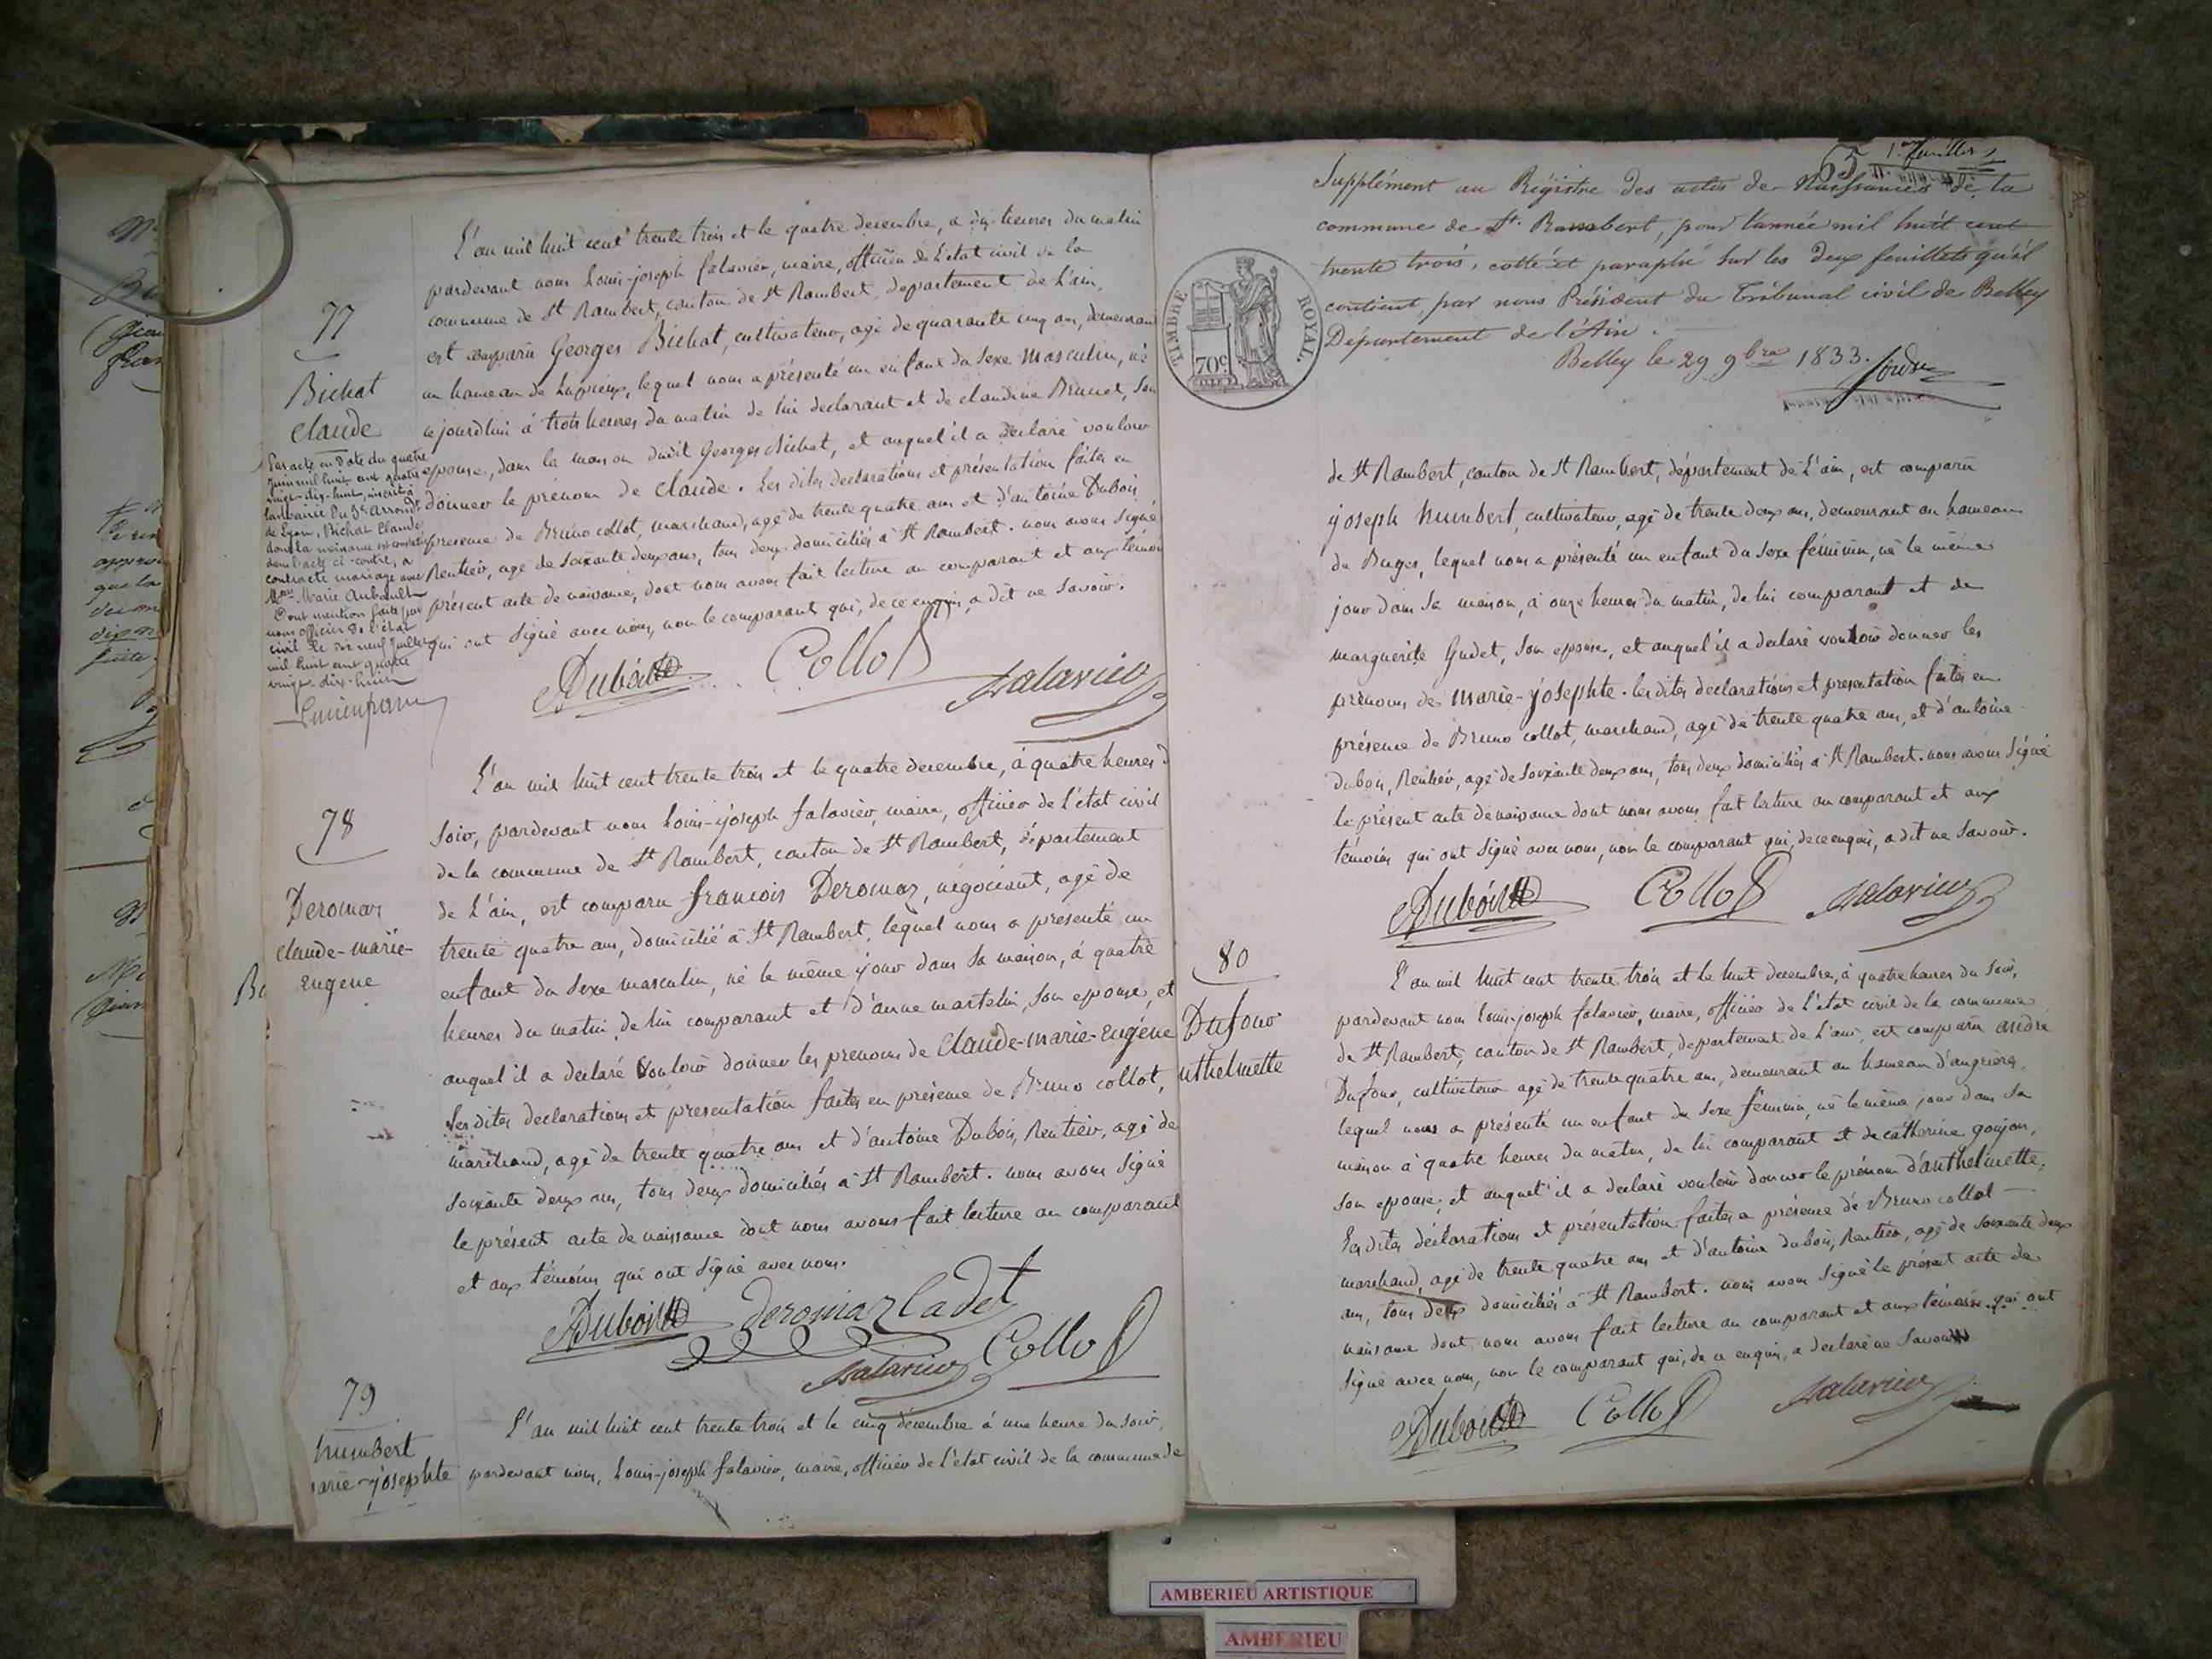 77
Bichat
Claude
Par acte en date du quatre
juin mil huit cent quatre
vingt dix-huit, inscrit à
la mairie du 3e arrondt
de Lyon, Bichat Claude
dont la naissance est constatée
dans l'acte ci-contre, a
contracté mariage avec
Marie Aubault
Dont mention faite par
nous officier de l'état
civil le dix neuf juillet
mil huit cent quatre
vingt-dix-huit
L'an mil huit cent trente trois et le quatre decembre, a dix heures du matin
pardevant nous Louis-joseph falavier, maire, officier de l'état civil de la
commune de St Rambert, canton de St Rambert, departement de l'ain,
est comparu Georges Bichat, cultivateur, agé de quarante cinq ans, demeurant
au hameau de Lupieux, lequel nous a présenté un enfant du sexe masculin, né
cejourdhui à trois heures du matin de lui declarant et de claudine Brunet, son
epouse, dans la maison dudit Georges Bichat, et auquel il a declaré vouloir
donner le prénom de Claude. Les dites declarations et présentation faites en
presence de Bruno collot, marchand, agé de trente quatre ans et d'antoine Dubois
Rentier, agé de soixante deux ans, tous deux domiciliés à St Rambert. nous avons signé
présent acte de naissance, dont nous avons fait lecture au comparant et aux témoins
qui ont signé avec nous, non le comparant qui, de ce enquis, a dit ne savoir.
Dubois Collot
falavier
78
Deromas
claude-marie-
Eugene
L'an mil huit cent trente trois et le quatre decembre, à quatre heures d
soir, pardevant nous Louis-joseph falavier, maire, officier de l'état civil
de la commune de St Rambert, canton de St Rambert, département
de l'ain, est comparu françois Deromas, négociant, agé de
trente quatre ans, domicilié à St Rambert, lequel nous a présenté un
enfant du sexe masculin, né le même jour dans sa maison, à quatre
heures du matin, de lui comparant et d'anne martelin, son epouse, et
auquel il a declaré vouloir donner les prenoms de Claude-marie-Eugéne
Les dites declarations et presentation faites en présence de Bruno collot,
marchand, agé de trente quatre ans et d'antoine Dubois, Rentier, agé de
soixante deux ans, tous deux domiciliés à St Rambert. nous avons signé
le présent acte de naissance dont nous avons fait lecture au comparant
et aux témoins qui ont signé avec nous.
Dubois Deromas Cadet
falavier Collot
79
humbert
arie-josephte
L'an mil huit cent trente trois et le cinq décembre à une heure du soir,
pardevant nous, Louis-joseph falavier, maire, officier de l'état civil de la commune de
65 1er feuillet
Supplément au Régistre des actes de Naissances de la
commune de St. Rambert, pour l'année mil huit cent
trente trois, cotté et paraphé sur les deux feuillets qu'il
contient, par nous Président du Tribunal civil de Belley
Département de l'Ain.
Belley le 29 9bre 1833.
TIMBRE ROYAL.
70c
de St Rambert, canton de St Rambert, département de l'ain, est comparu
joseph humbert, cultivateur, agé de trente deux ans, demeurant au hameau
de Buges, lequel nous a présenté un enfant du sexe féminin, né le même
jour dans sa maison, à onze heures du matin, de lui comparant et de
marguerite Gudet, son epouse, et auquel il a declaré vouloir donner les
prenoms de marie-josephte. les dites declarations et presentation faites en
présence de Bruno collot, marchand, agé de trente quatre ans, et d'antoine
dubois, Rentier, agé de soixante deux ans, tous deux domiciliés à St Rambert. nous avons signé
le présent acte de naissance dont nous avons fait lecture au comparant et aux
témoins qui ont signé avec nous, non le comparant qui, de ce enquis, a dit ne savoir.
Dubois Collot falavier
80
Dufour
nthelmette
L'an mil huit cent trente trois et le huit decembre, à quatre heures du soir,
pardevant nous Louis-joseph falavier, maire, officier de l'état civil de la commune
de St Rambert, canton de St Rambert, departement de l'ain, est comparu andré
Dufour, cultivateur agé de trente quatre ans, demeurant au hameau d'angrières,
lequel nous a présenté un enfant du sexe féminin, né le même jour dans sa
maison à quatre heures du matin, de lui comparant et de catherine goujon,
son epouse, et auquel il a declaré vouloir donner le prénom d'anthelmette.
Les dites déclarations et présentation faites en présence de Bruno collot
marchand, agé de trente quatre ans et d'antoine dubois, Rentier, agé de soixante deux
ans, tous deux domiciliés à St Rambert. nous avons signé le présent acte de
naissance dont nous avons fait lecture au comparant et aux témoins qui ont
signé avec nous, non le comparant qui, de ce enquis, a declaré ne savoir
Dubois Collot falavier
AMBERIEU ARTISTIQUE
AMBERIEU